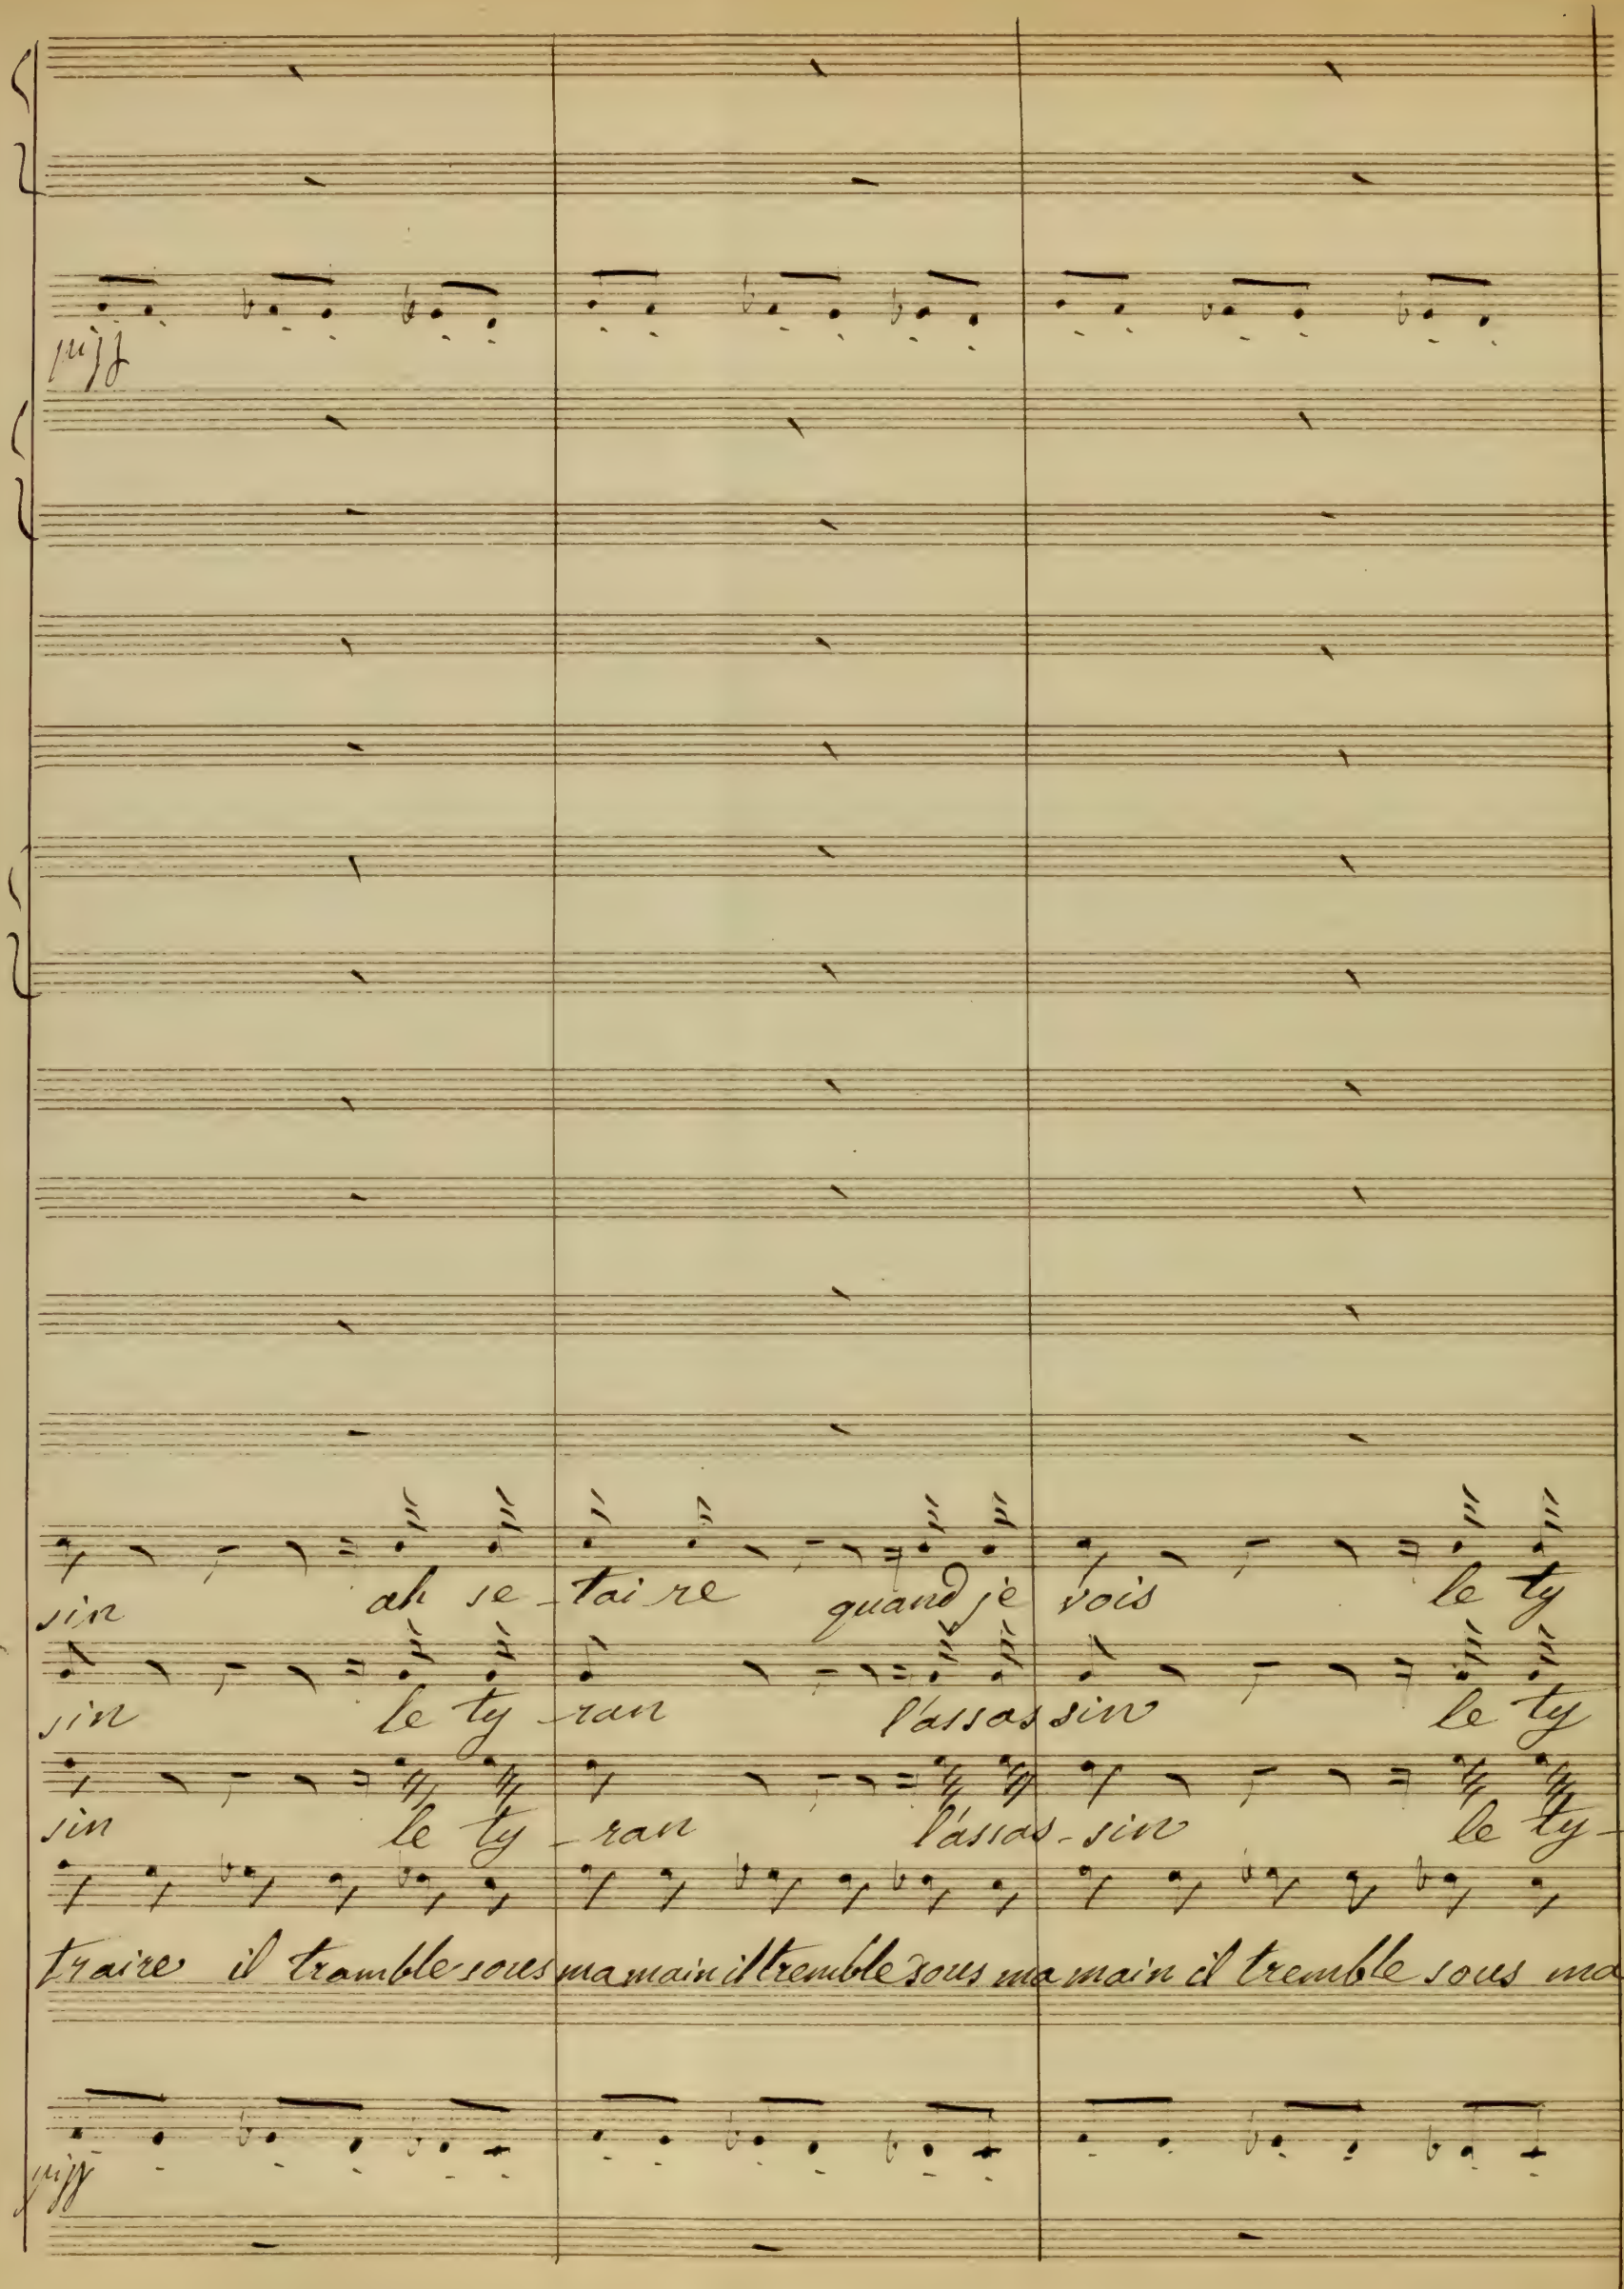 pizz
sin ah se - tai re quand je vois le ty
sin le ty - ran l'assas sin le ty
sin le ty - ran l'assas - sin le ty -
traire il tramble sous ma main il tremble sous ma main il tremble sous ma
pizz